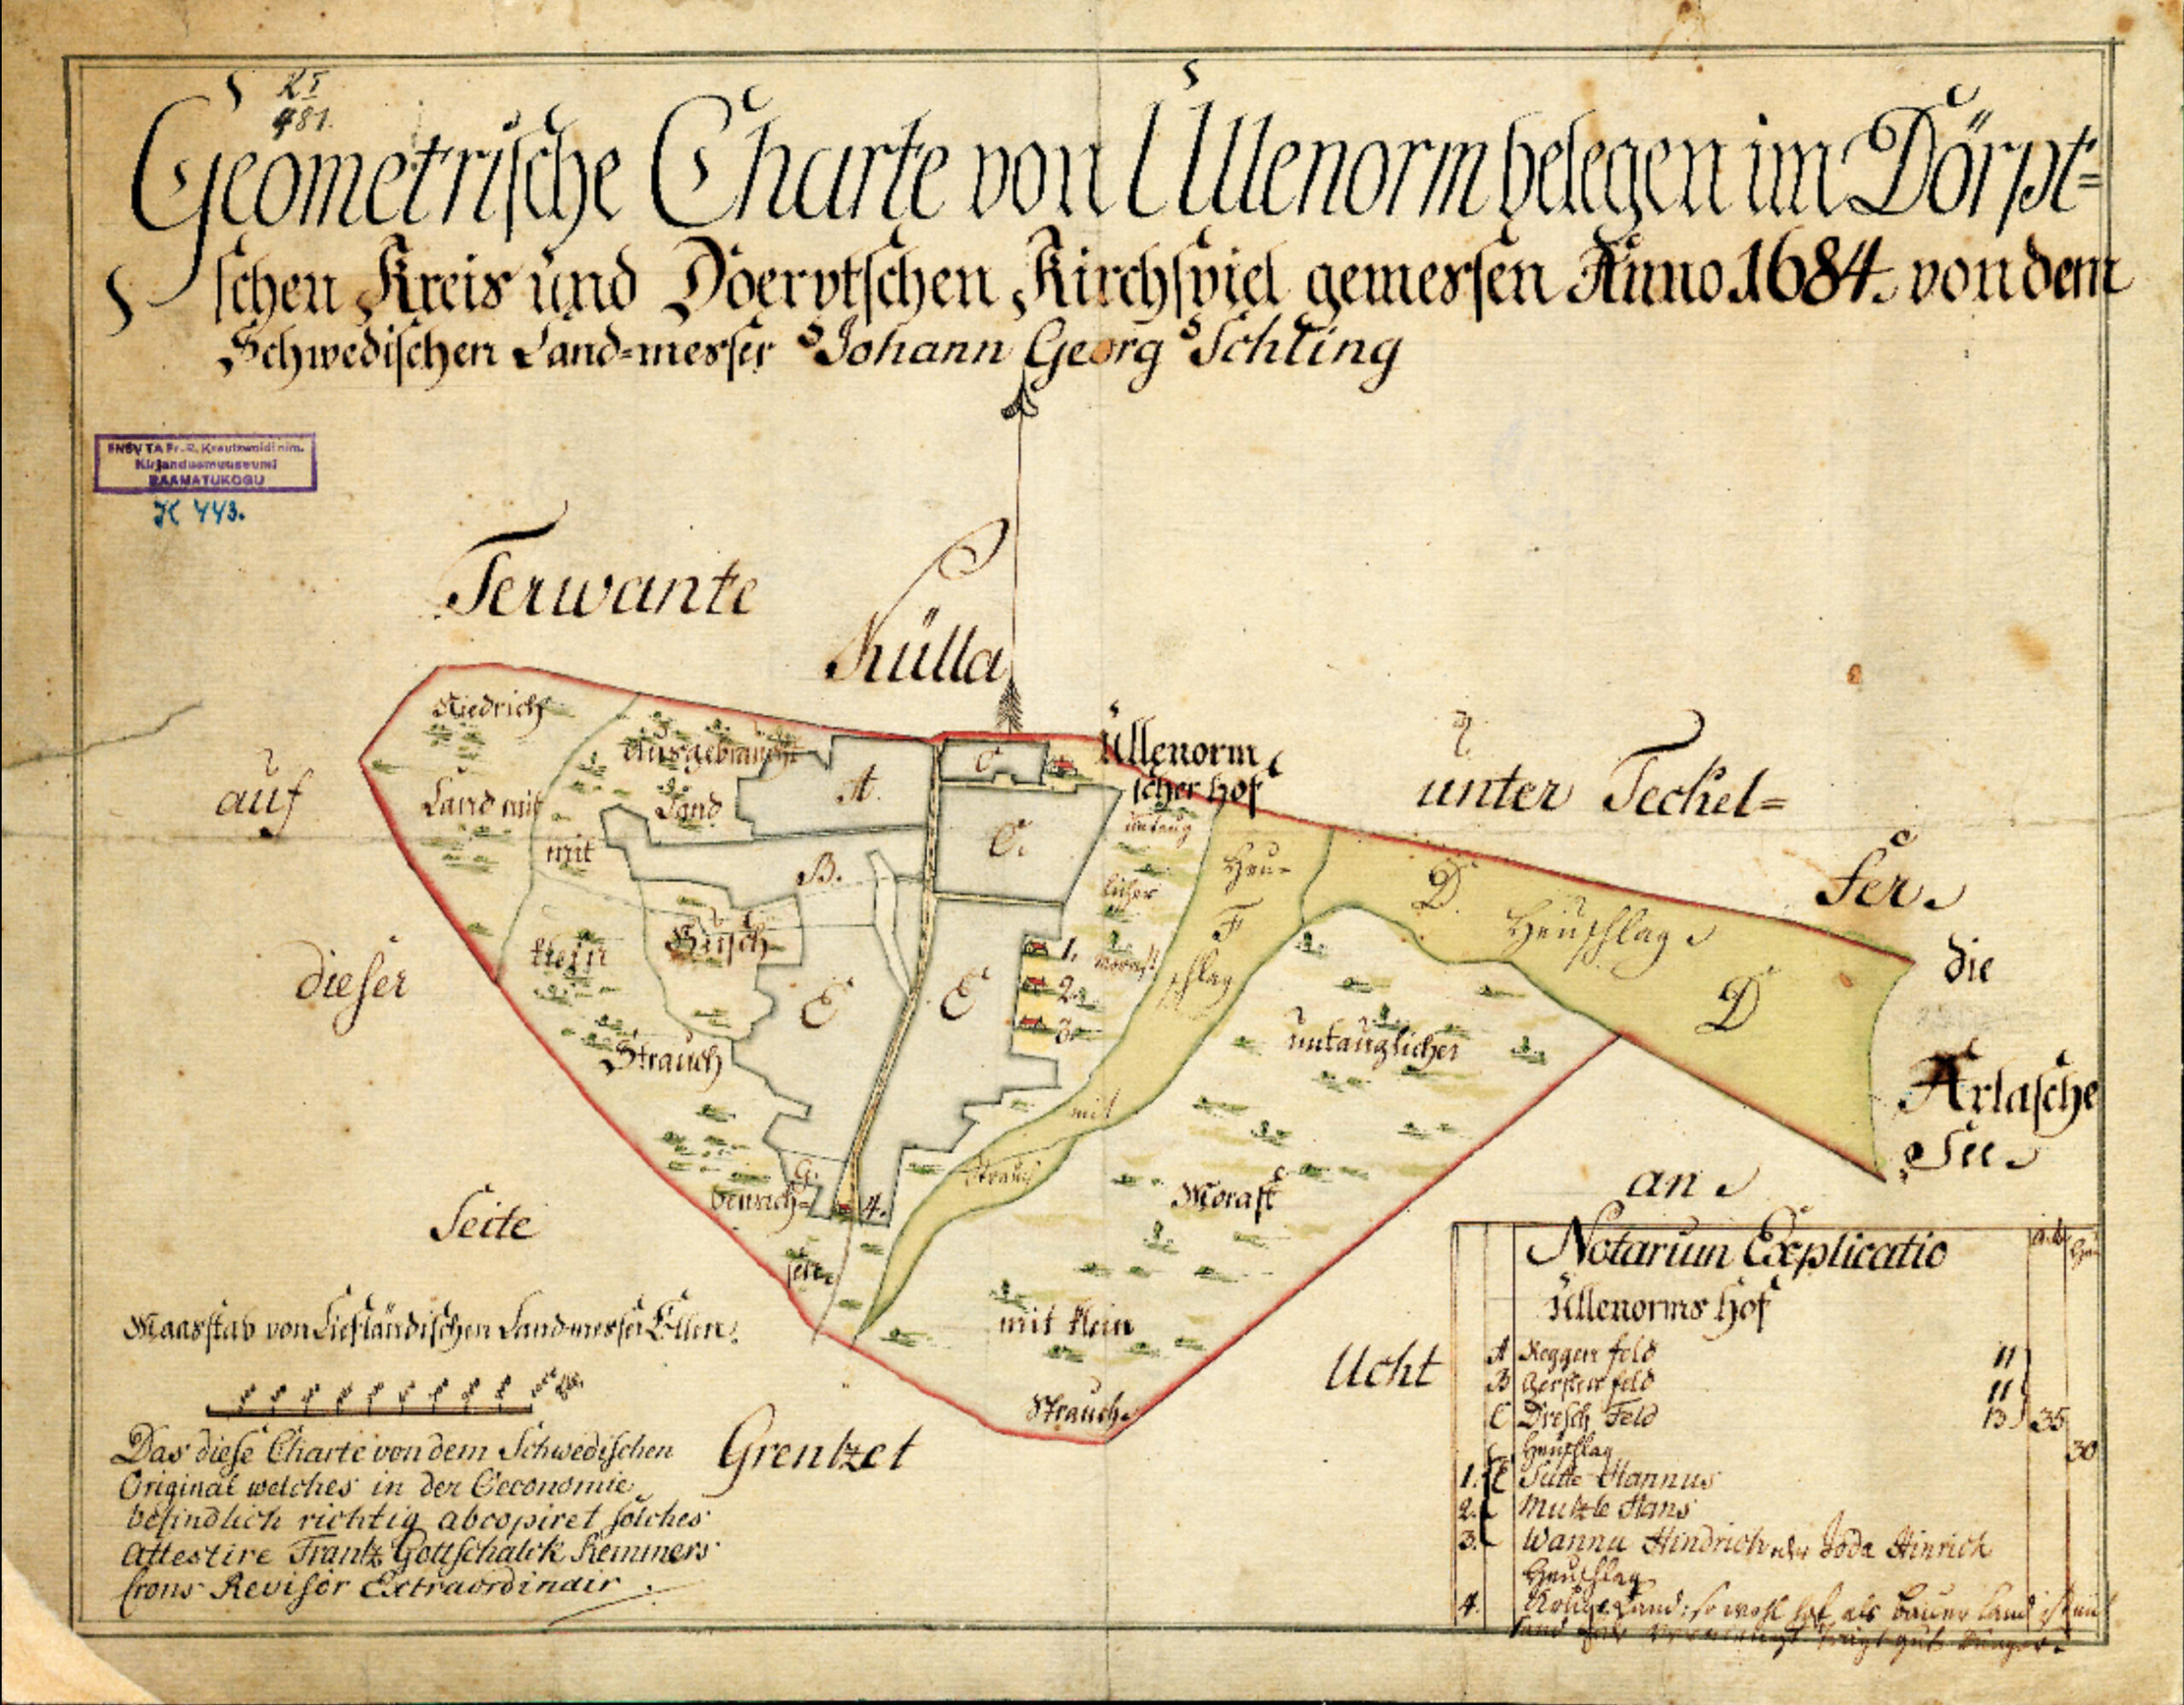 RI
481.
Geometrische Charte von Üllenorm belegen im Dörpt=
schen Kreis und Doerptschen Kirchspiel gemessen Anno 1684. von dem
Schwedischen Land=messer Johann Georg Schling
ENSV TA Fr. R. Kreutzwaldi nim.
Kirjandusmuuseumi
RAAMATUKOGU
K 443.
Terwante
Külla
auf
dieser
Seite
Grentzet
Ucht
an
unter Techel=
fer
die
Arlasche
See
Üllenorm
scher hof
Niedrich
Land mit
Ausgebraucht
Land
mit
klein
Busch
Strauch
bewach=
sen
A.
B.
C
C.
E
E
G.
1.
2.
3.
4.
untaug
licher
Morast
Heu=
F
schlag
mit
Strauch
D.
Heuschlag
D
untauglicher
Morast
mit klein
Strauch
Maasstab von Liefländischen Landmesser Ellen.
Das diese Charte von dem Schwedischen
Original welches in der Oeconomie
befindlich richtig abcopiret solches
attestire Frantz Gottschalck Remmers
Crons Revisor Extraordinair.
Notarum Explicatio
Üllenorms hof
A Roggen feld 11
B Gersten feld 11
C Dresch Feld 13 35
Heuschlag 30
1. E Sutte Hannus
2. Mutzle Hans
3. Wannu Hindrich oder Joda Hinrich
Heuschlag
4. Land: so wohl hof als bauer land ist mit